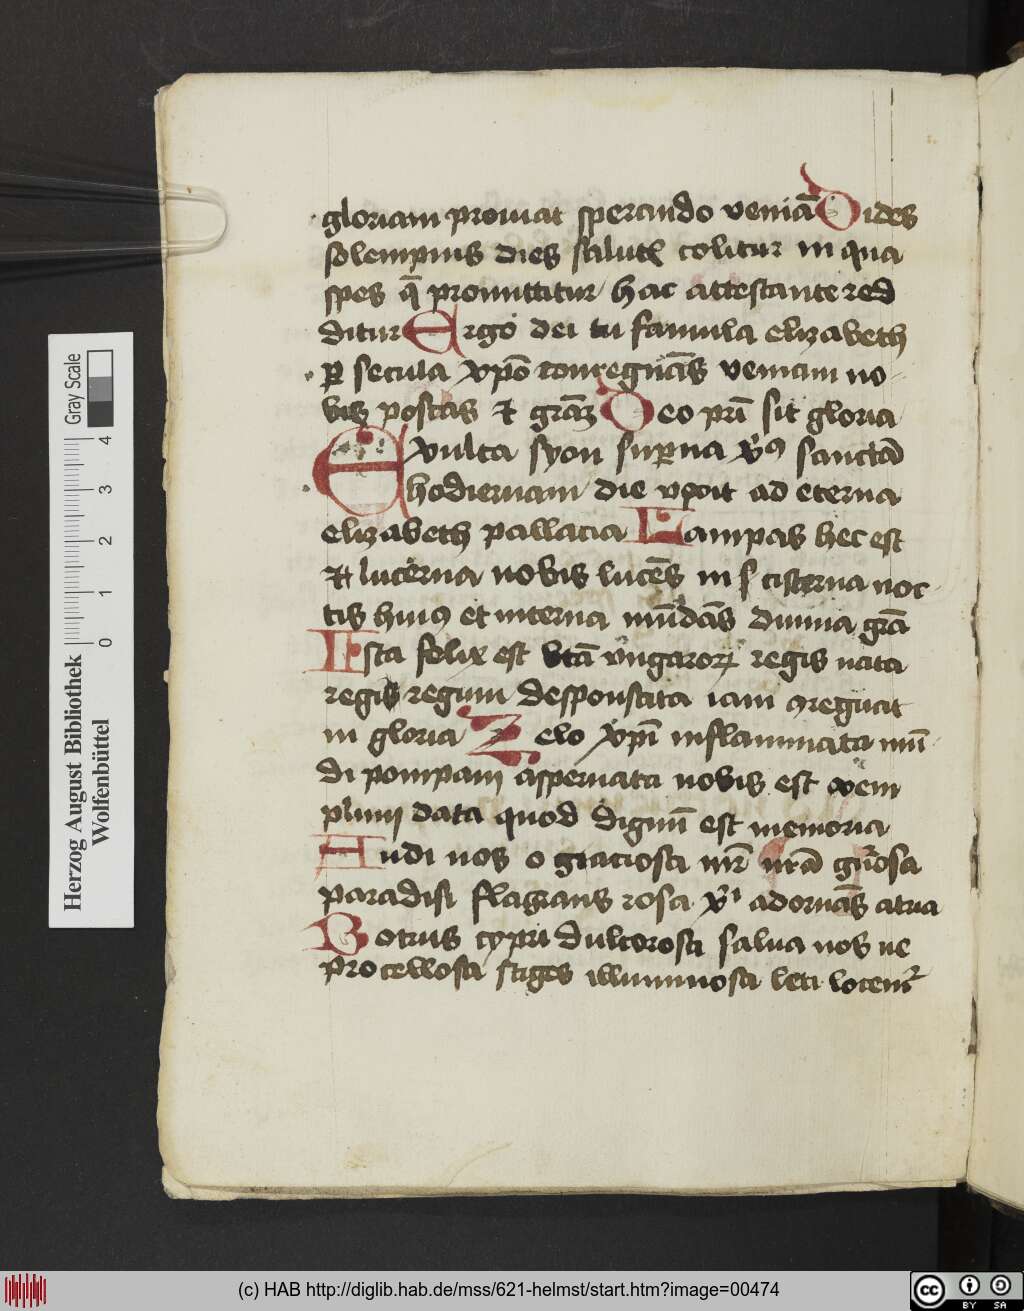 gloriam promat sperando veniā Dides
solempnis dies salutꝭ colitur in qua
spes q̄ promittitur hac attestante red
ditur Ergo dei tu famula elizabeth
ꝑ secula xp̄o conregnās veniam no-
bis poscas et grāz Deo pr̄i sit gloria
Exulta syon suꝑna sanctā
hodiernam die vexit ad eterna
elizabeth pallacia Lampas hec est
et lucerna nobis lucēs in cisterna noc-
tis huiꝰ et interna mūdās diuina grā
Ista felix est vngaroꝝ regis nata
regis regum desponsata iam ꝯregnat
in gloria Zelo xp̄i inflammata mū-
di pompam aspernata nobis est exem
plum data quod dignū est memoria
Audi nos o graciosa mr̄ nr̄ā gn̄rosa
paradisi flagrans rosa adornās atria
Botrus cypri dulcorosa salua nos ne
procellosa stiges illuminosa leti
Herzog August Bibliothek
Wolfenbüttel
Gray Scale
0 1 2 3 4
(c) HAB http://diglib.hab.de/mss/621-helmst/start.htm?image=00474
cc BY SA